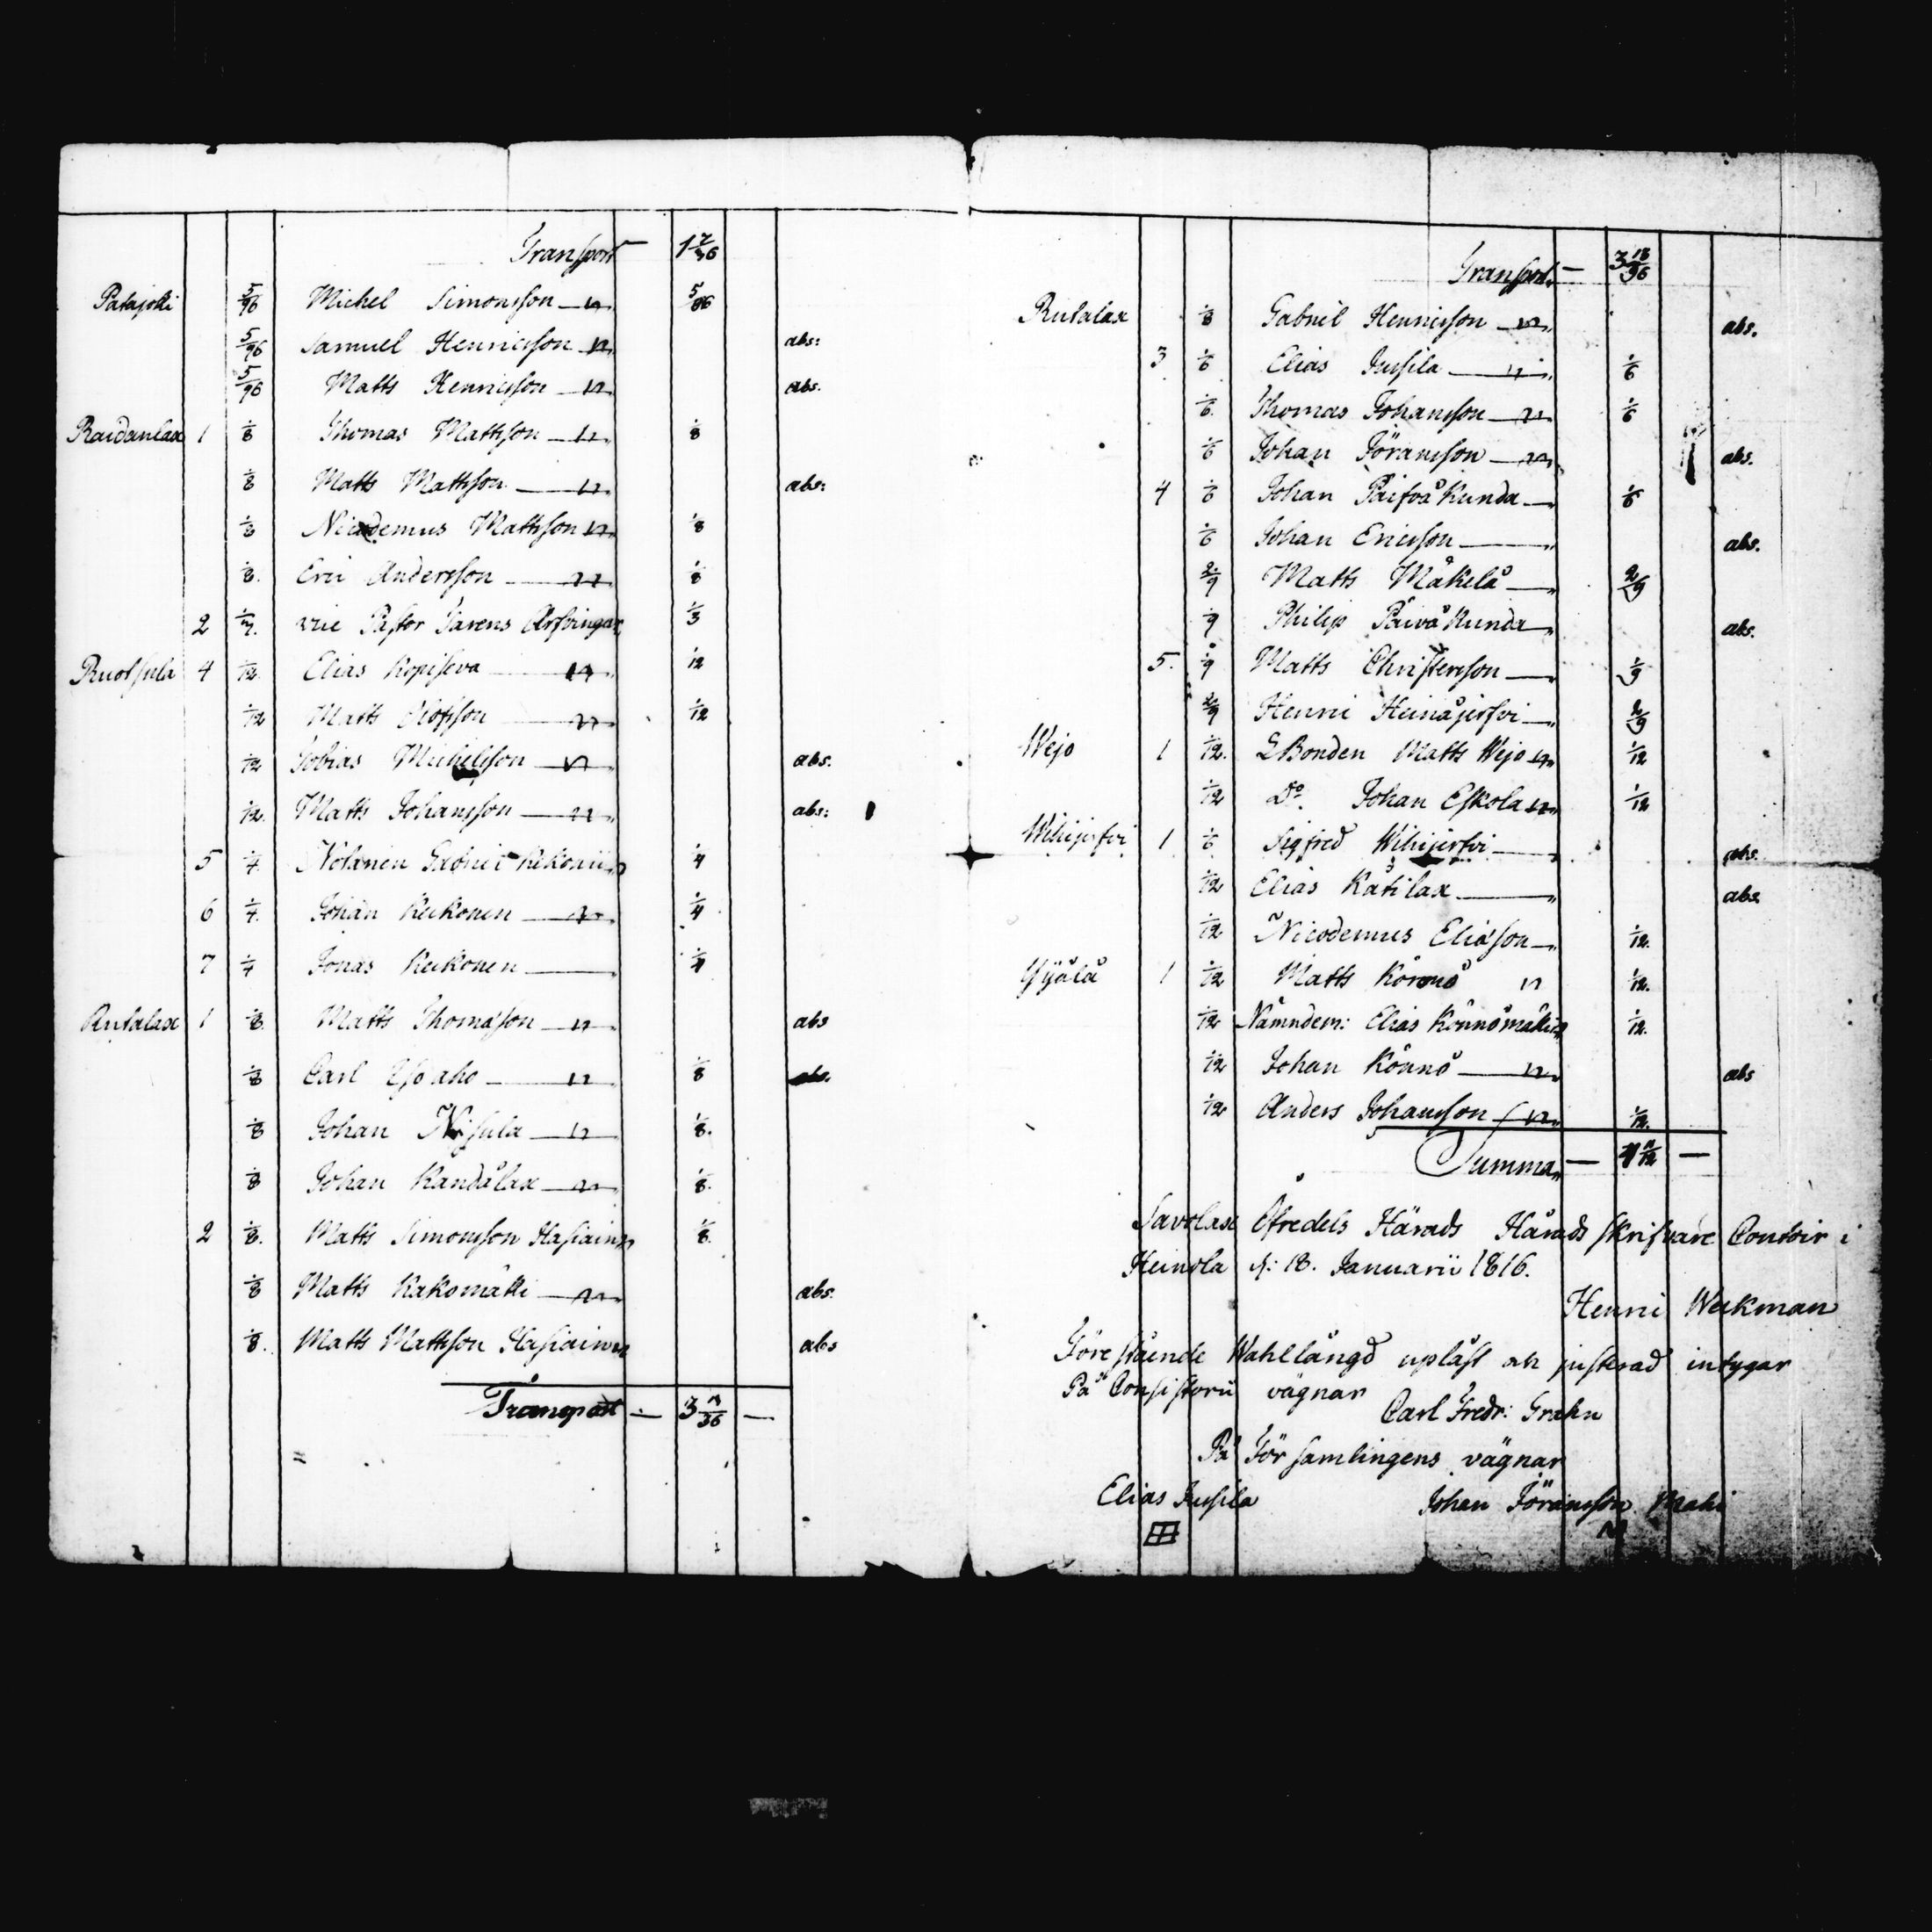 Transport — 1 7/36
Patajoki 5/96 Michel Simonsson — n 5/96
5/96 Samuel Henricsson n abs:
5/96 Matts Henricsson — n abs.
Raidanlax 1 1/8 Thomas Mattsson — n 1/8
1/8 Matts Mattsson — n abs:
1/8 Nicodemus Mattsson n 1/8
1/8. Eric Andersson — n 1/8
2 Pastor Arfvingar 1/3
Ruotsula 4 1/12. Elias Kopiseva n 1/12
1/12 Matts — n 1/12
1/12 Tobias Michelsson — n abs.
1/12. Matts Johansson — n abs:
5 1/4
6 1/4. Johan Reikonen — n 1/4
7 1/4 Jonas Reikonen — 1/4
Rutalax 1 1/8. Matts Thomasson — n abs
1/8 Carl Iso aho — n 1/8 abs.
1/8 Johan Nisula — n 1/8.
1/8 Johan Kandålax — n 1/8.
2 1/8. Matts Simonsson Hasiain 1/8.
1/8 Matts Kakomäki — n abs.
1/8. Matts Mattsson Hasiain abs
Transport — 3 —
Transport — 3 18/96
Rutalax 1/8 Gabriel Henricsson — n abs.
3 1/6 Elias Jussila — n 1/6
1/6. Thomas Johansson — n 1/6
1/6 Johan Jöransson — n abs.
4 1/6 Johan Päifväkunda — 1/6
1/6 Johan Ericsson — abs.
2/9 Matts Mäkelä — 2/9
1/9 Philip Päiväkunda abs.
5. 1/9 Matts Christersson — 1/9
2/9 Henric Heinäjerfvi — 2/9
Wejo 1 1/12. LBonden Matts Wejo n 1/12
1/12 Do. Johan Eskola n 1/12
Wihijerfvi 1 1/6 Sigfred Wihijerfvi — abs.
1/12 Elias Kätilax — abs.
1/12 Nicodemus Eliasson — 1/12.
Yijälä 1 1/12 Matts Könnö n 1/12.
1/12 Nämndem: Elias Könnömäki 1/12.
1/12 Johan Könnö — n abs
1/12 Anders Johansson — n 1/12.
Summa — 4 11/12 —
Savolax Öfredels Härads Härads skrifvare Contoir i
Heinola d: 18. Januarii 1816.
Henric Weckman
Förestående Wahllängd upläst och justerad intygar
På Consistorii vägnar
Carl Fredr: Grahn
På Församlingens vägnar
Elias Jussila Johan Jöransson Mahi